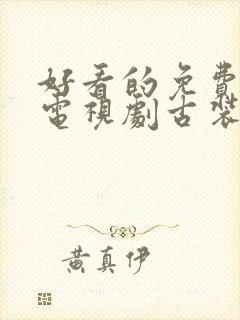 好看的免費
電視劇古裝
黃真伊